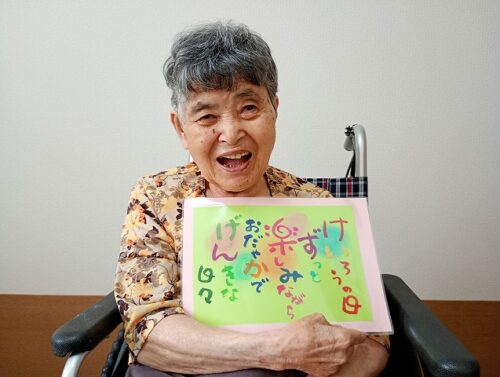 けいろうの日
ずっと
楽しみながら
おだやかで
げんきな
日々